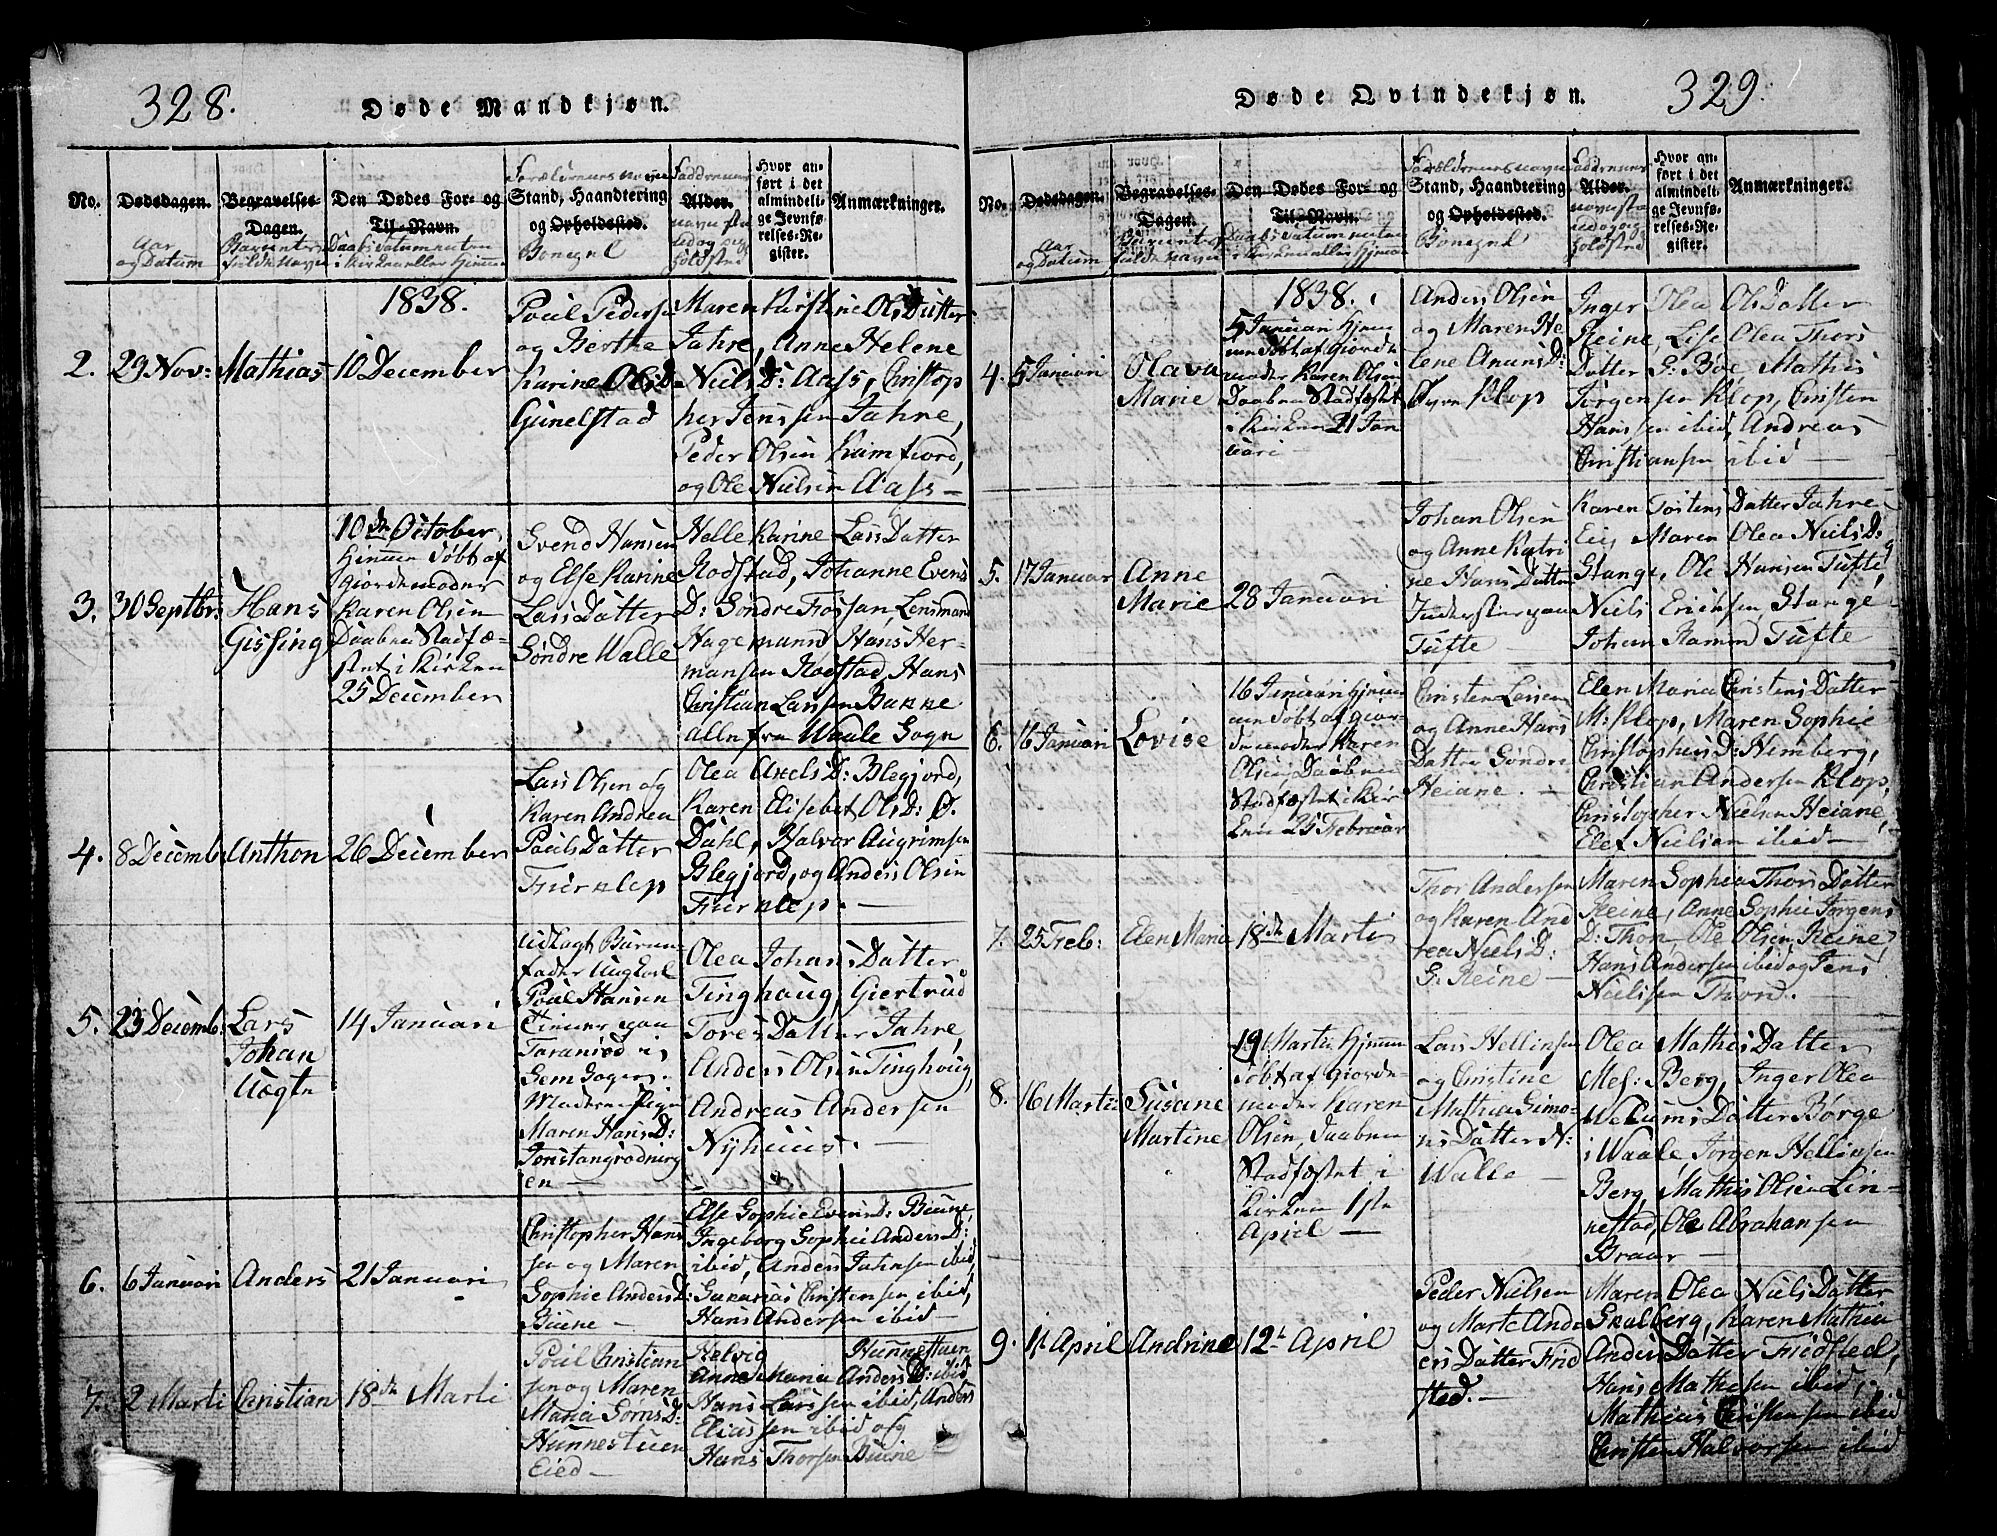 328.
Døde Mandkjøn.
No.
Dødsdagen.
Aar
og Datum
Begravelses-
Dagen.
Den Dødes For- og
Til-Navn.
Stand, Haandtering
og Opholdsted.
Alder.
Hvor an-
ført i det
almindeli-
ge Jevnfø-
relses-Re-
gister.
Anmærkninger.
2.
29 Nov:
Mathias
1838.
10 December
Poul Peders
og Berthe
Karine Ols D
Gunelstad
Maren Kirstine Ols Datter
Jahre, Anne Helene
Niels D: Aass, Christop
her Jenssen Jahre,
Peder Olsen Ramfiord,
og Ole Nielsen Aass –
3.
30 Septbr:
Hans
Gissing
10de October
Hjemme Døbt af
Giordemoder
Karen Olsen
Daaben Stadfæ-
stet i Kirken
25 December
Svend Hansen
og Else Karine
Lars Datter
Søndre Walle
Helle Karine Lars Datter
Rodstad, Johanne Evens
D: Søndre Fossan, Lensmand
Hagemann Hans Her-
mansen Rodstad, Hans
Christian Larssen Bakke
alle fra Waale Sogn
4.
8 Decemb
Anthon
26 December
Lars Olsen og
Karen Andrea
Pouls Datter
Olea Axels D: Blegjord,
Karen Elisebet Ols D: Ø.
Dahl, Halvor Augrimsen
Blegjord, og Anders Olsen
5.
23 Decemb:
Lars
Johan
14 Januari
Udlagt Barne
fader
Poul Hansen
Maren Hans D:
en –
Olea Johans Datter
Tinghaug, Giertrud
Tores Datter Jahre,
Anders Olsen Tinghoug,
Andreas Andersen
Nyhuus. –
6.
6 Januari
Anders
21 Januari
Christopher Hans
sen og Maren
Sophie Anders D:
Biune –
Else Sophie Evens D: Biune,
Ingeborg Sophie Anders D:
ibid, Anders Jahnsen ibid,
Christensen ibid,
Hans Andersen ibid –
7.
2 Marti
Christian
18de Marti
Poul Christian
sen og Maren
Maria Sørns D:
Hunnestuen
Eied –
Helvig
Hunnestuen
Anne Maria Anders D: ibid
Hans Larssen ibid, Anders
Eliassen ibid og
Hans Thorsen Biune
329.
Døde Qvindekjøn.
No.
Dødsdagen.
Aar
og Datum
Begravelses-
Dagen.
Den Dødes For- og
Til-Navn.
Stand, Haandtering
og Opholdsted.
Alder.
Hvor an-
ført i det
almindeli-
ge Jevnfø-
relses-Re-
gister.
Anmærkninger.
4.
5 Januari
Olava
Marie
1838.
5 Januari Hjem
me Døbt af Giorde
moder Karen Olsen
Daaben Stadfæstet
i Kirken 21 Jan
uari –
Anders Olsen
og Maren He
lene Amuns D:
Klop
Inger Olea Ols Datter
Reine, Lise Olea Thors
Datter S: Bøe, Mathis
Jørgensen Klop, Christen
Hanssen ibid, Andreas
Christiansen ibid –
5.
17 Januar
Anne
Marie
28 Januari
Johan Olsen
og Anne Katri
ne Hans Datter
Tufte –
Karen Tostens Datter Jahre
Eie, Maren Olea Niels D:
Stange, Ole Hansen Tufte,
Niels Ericksen Stange
Johan Tufte
6.
16 Januari
Lovise
16 Januari Hjem
me Døbt af Gior
de moder Karen
Olsen, Daaben
Stadfæstet i Kir
ken 25 Februar
Christen Larsen
og Anne Hans
Datter Søndre
Heiane. –
Elen Maria Christens Datter
M: Klop, Maren Sophie
Christophers D: Himberg,
Christian Andersen Klop,
Christopher Nielsen Heiane,
Elef Nielsen ibid –
7.
25 Feeb:
Elen Maria
18de Marti
Thor Andersen
og Karen And
rea Niels D:
S. Reine –
Maren Sophia Thors Datter
Reine, Anne Sophie Jørgens
D: Thon, Ole Olsen, Reine,
Hans Andersen ibid og Jens
Nielsen Thon. –
8.
16 Marti
Susane
Martine
19 Marti Hjemme
Døbt af Giorde-
moder Karen
Olsen, Daaben
Stadfæstet i
Kirken 1ste
April –
Lars Hellinsen
og Christine
Mathia Simo-
ns Datter N:
Walle –
Olea Mathis Datter
Mel: Berg, Inger Olea
Datter Børge
i Waale Jørgen Hellinsen
Berg, Mathis Olsen Lin-
nestad, Ole Abrahamsen
Braar –
9.
11 April
Andrine
12te April
Peder Nielsen
og Marte And
ers Datter Frid
sted. –
Maren Olea Niels Datter
Skalberg, Karen Mathia
Anders Datter Friedsted,
Hans Mathesen ibid,
Mathias Christensen ibid
Christen Halvorsen ibid